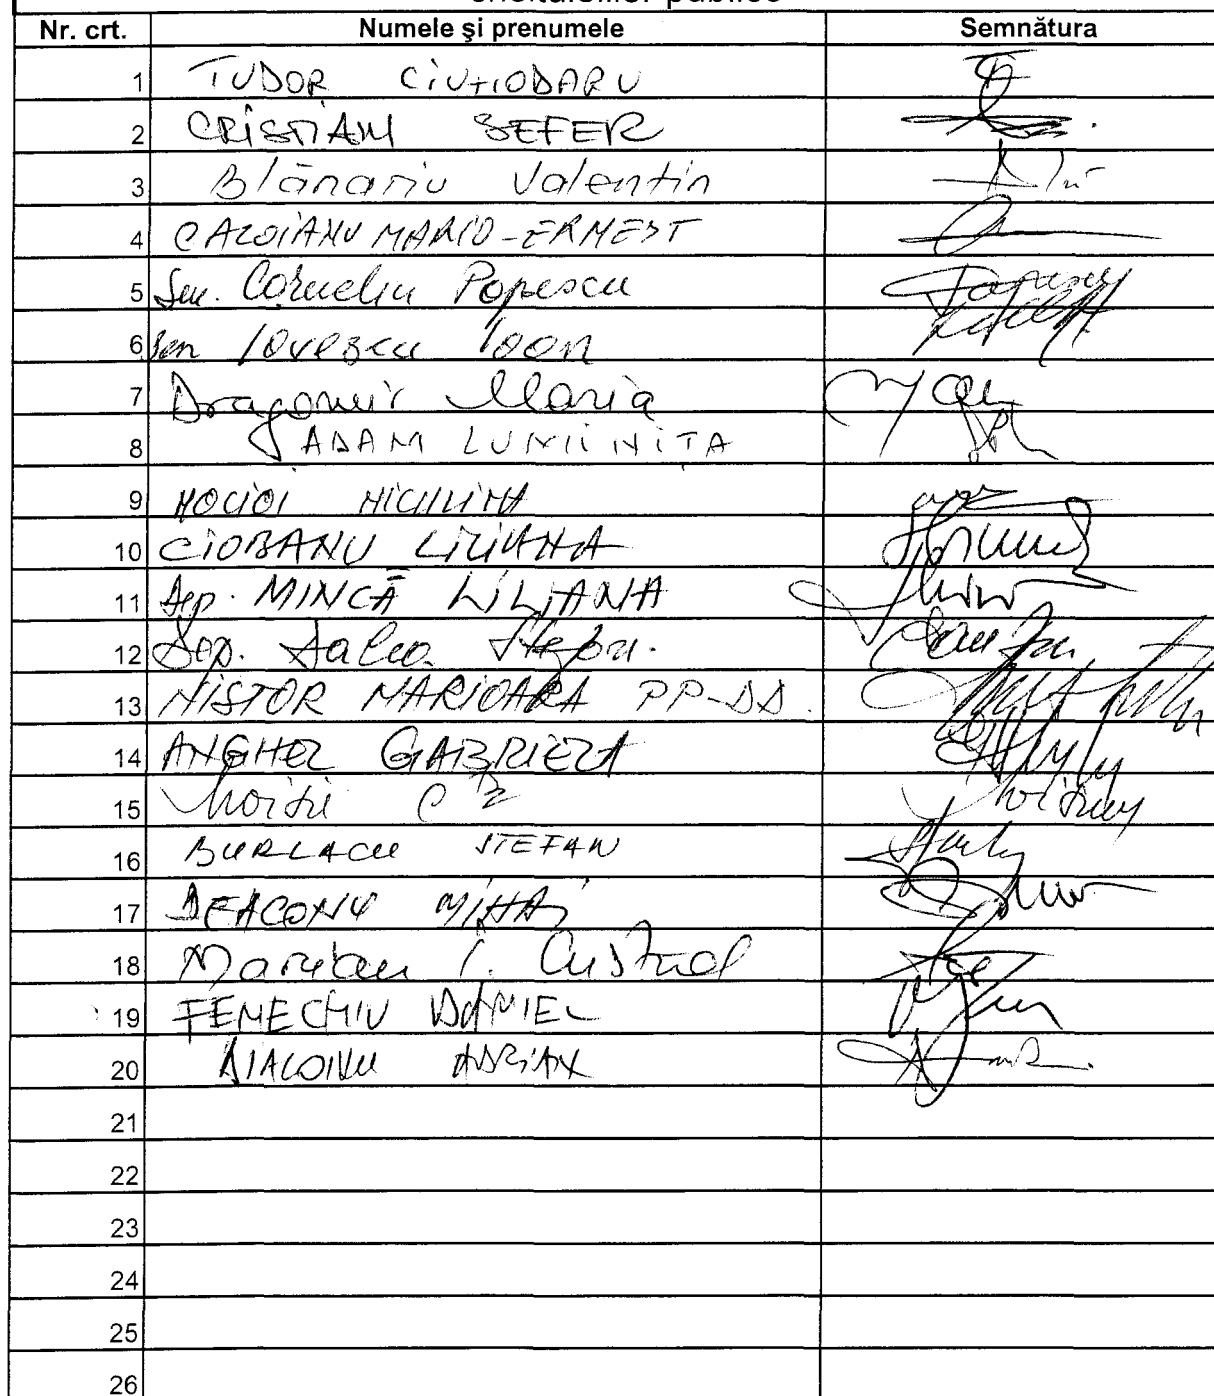 cheltuielilor publice
Nr. crt. Numele şi prenumele Semnătura
1 TUDOR CIUHODARU
2 CRISTIAN SEFER
3 Blănariu Valentin
4 CAZOIANU MARIO-ERNEST
5 Sen. Corneliu Popescu Popescu
6 Sen Iovescu Ioan
7 Dragomir Maria
8 ADAM LUMINIŢA
9 MOCIOI NICULINA
10 CIOBANU LILIANA
11 Dep. MINCĂ LILIANA
12 Dep. Dalca Ştefan.
13 NISTOR MARIOARA PP-DD.
14 ANGHEL GABRIELA
15 Moisii C
16 BURLACU STEFAN
17 DEACONU MIHAI
18 Marian C. Cristinel
19 FENECHIU DANIEL
20 DIACONU ADRIAN
21
22
23
24
25
26